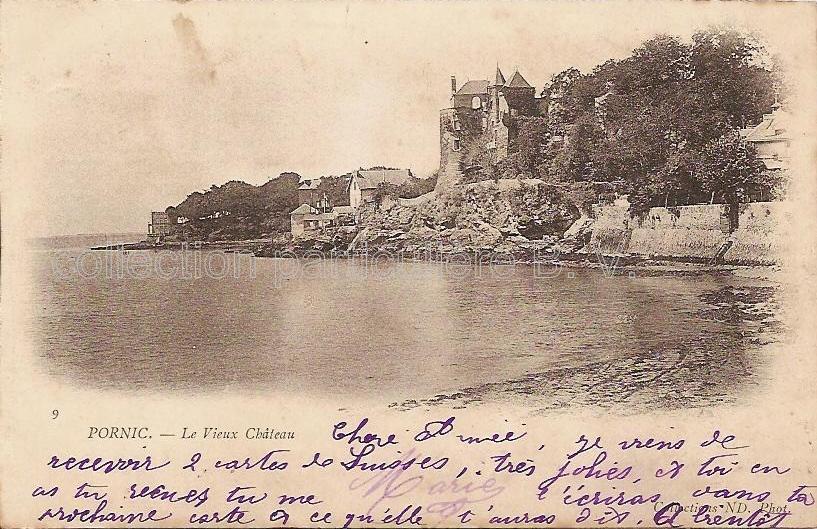 collection particulière B. V.
9
PORNIC. — Le Vieux Château
Chère amie, je viens de
recevoir 2 cartes de Suisses, très jolies, et toi en
as tu reçues tu me l'écriras dans ta
Marie
Collections ND. Phot.
prochaine carte et ce qu'elle t'auras dis. A bientôt